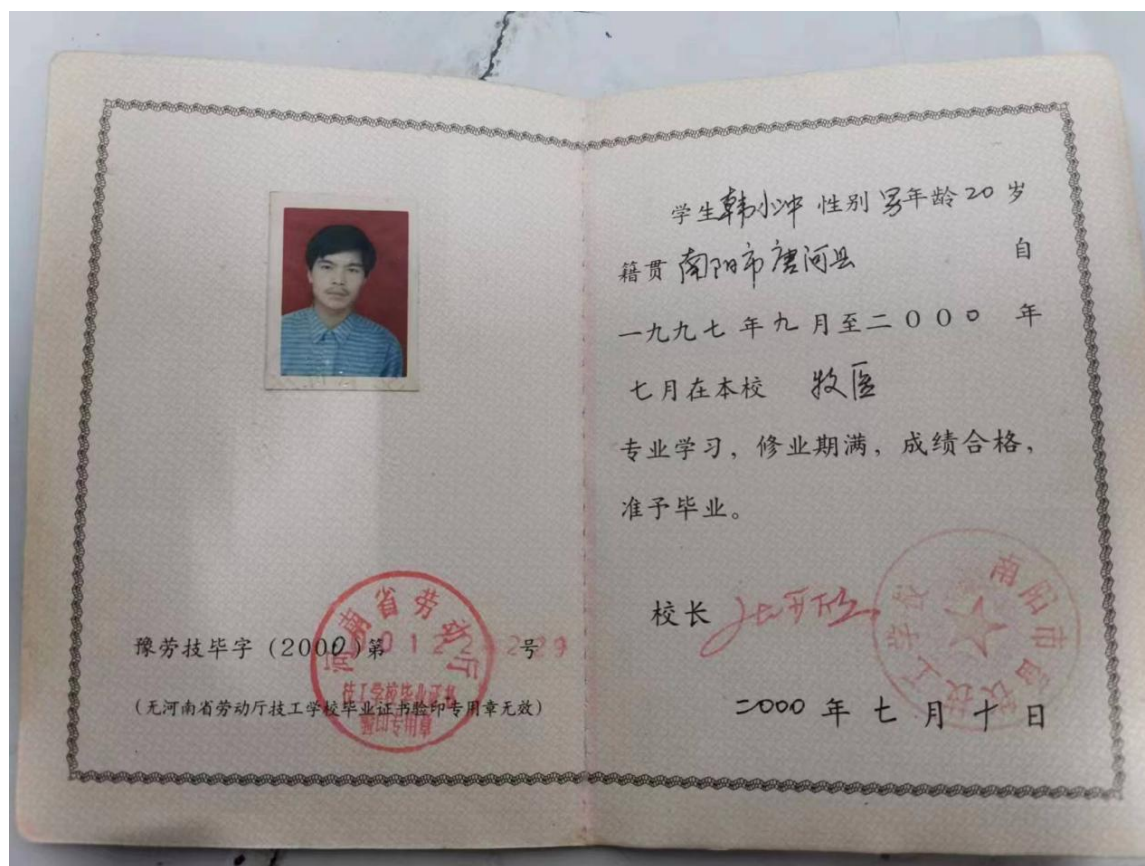 豫劳技毕字(2000)第01222229号
(无河南省劳动厅技工学校毕业证书验印专用章无效)
河南省劳动厅
技工学校毕业证书
验印专用章
学生韩小冲 性别 男年龄20岁
籍贯 南阳市唐河县 自
一九九七年九月至二000年
七月在本校 牧医
专业学习,修业期满,成绩合格,
准予毕业。
校长
南阳市畜牧技工学校
二000年七月十日